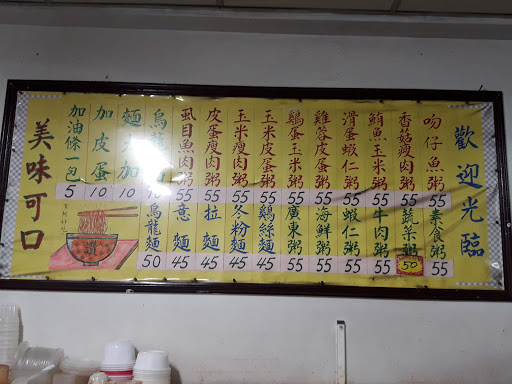 歡迎光臨
吻仔魚粥 55
香菇瘦肉粥 55
鮪魚玉米粥 55
滑蛋蝦仁粥 55
雞蓉皮蛋粥 55
雞蛋玉米粥 55
玉米皮蛋粥 55
玉米瘦肉粥 55
皮蛋瘦肉粥 55
虱目魚肉粥 55
加皮蛋 10
加油條一包 5
素食粥 55
蔬菜粥 50
牛肉粥 55
蝦仁粥 55
海鮮粥 55
廣東粥 55
雞絲麵 45
冬粉麵 45
拉麵 45
意麵 45
烏龍麵 50
美味可口
讚